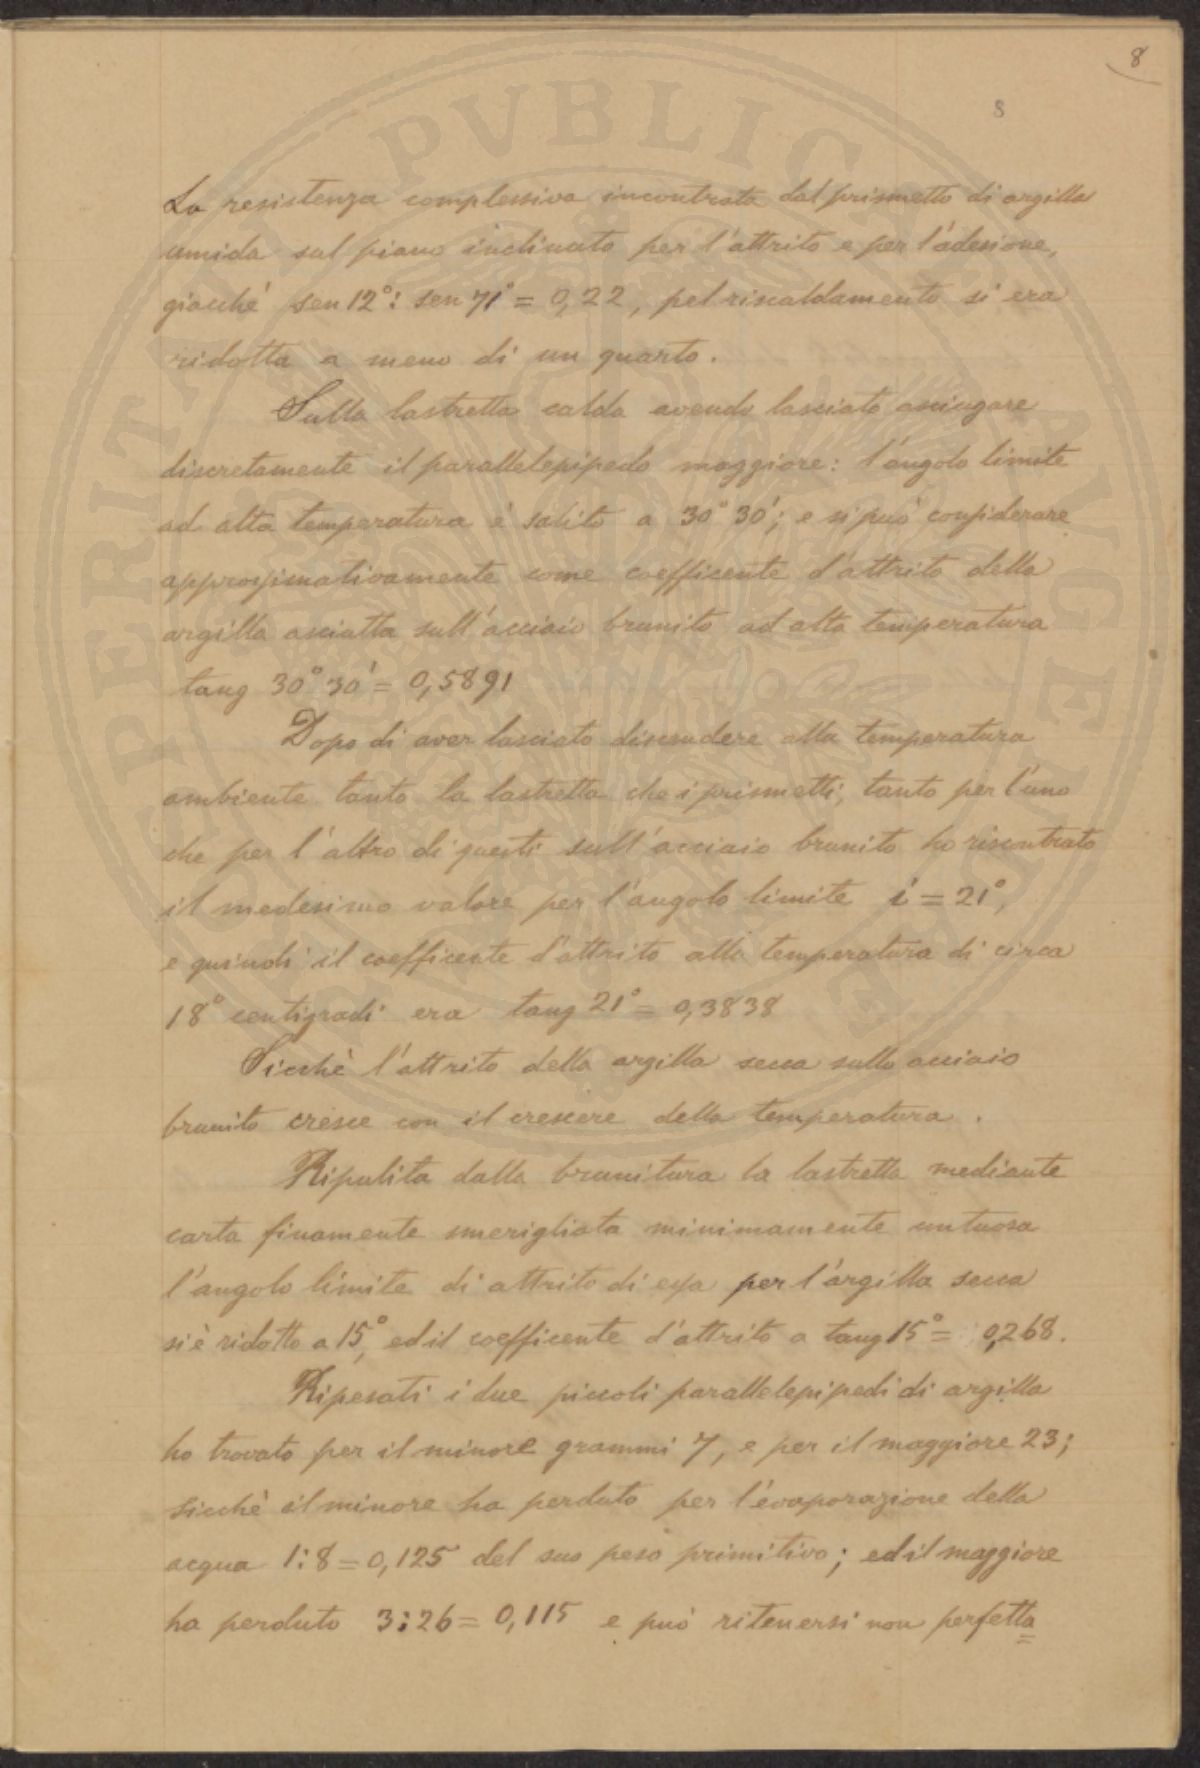 8
8
La resistenza complessiva incontrata dal prismetto di argilla
umida sul piano inclinato per l'attrito e per l'adesione,
giacchè sen 12°: sen 71° = 0,22, pel riscaldamento si era
ridotta a meno di un quarto.
Sulla lastretta calda avendo lasciato asciugare
discretamente il parallelepipedo maggiore: l'angolo limite
ad alta temperatura è salito a 30° 30'; e si può considerare
approssimativamente come coefficente d'attrito della
argilla asciatta sull'acciaio brunito ad alta temperatura
tang 30° 30' = 0,5891
Dopo di aver lasciato discendere alla temperatura
ambiente tanto la lastretta che i prismetti, tanto per l'uno
che per l'altro di questi sull'acciaio brunito ho riscontrato
il medesimo valore per l'angolo limite i = 21°,
e quindi il coefficente d'attrito alla temperatura di circa
18° centigradi era tang 21° = 0,3838
Sicchè l'attrito della argilla secca sullo acciaio
brunito cresce con il crescere della temperatura.
Ripulita dalla brunitura la lastretta mediante
carta finamente smerigliata minimamente untuosa
l'angolo limite di attrito di essa per l'argilla secca
si è ridotto a 15°, ed il coefficente d'attrito a tang 15° = 0,268.
Ripesati i due piccoli parallelepipedi di argilla
ho trovato per il minore grammi 7, e per il maggiore 23;
sicchè il minore ha perduto per l'evaporazione della
acqua 1:8 = 0,125 del suo peso primitivo; ed il maggiore
ha perduto 3:26 = 0,115 e può ritenersi non perfetta=
PERITIA PVBLICA AVGE